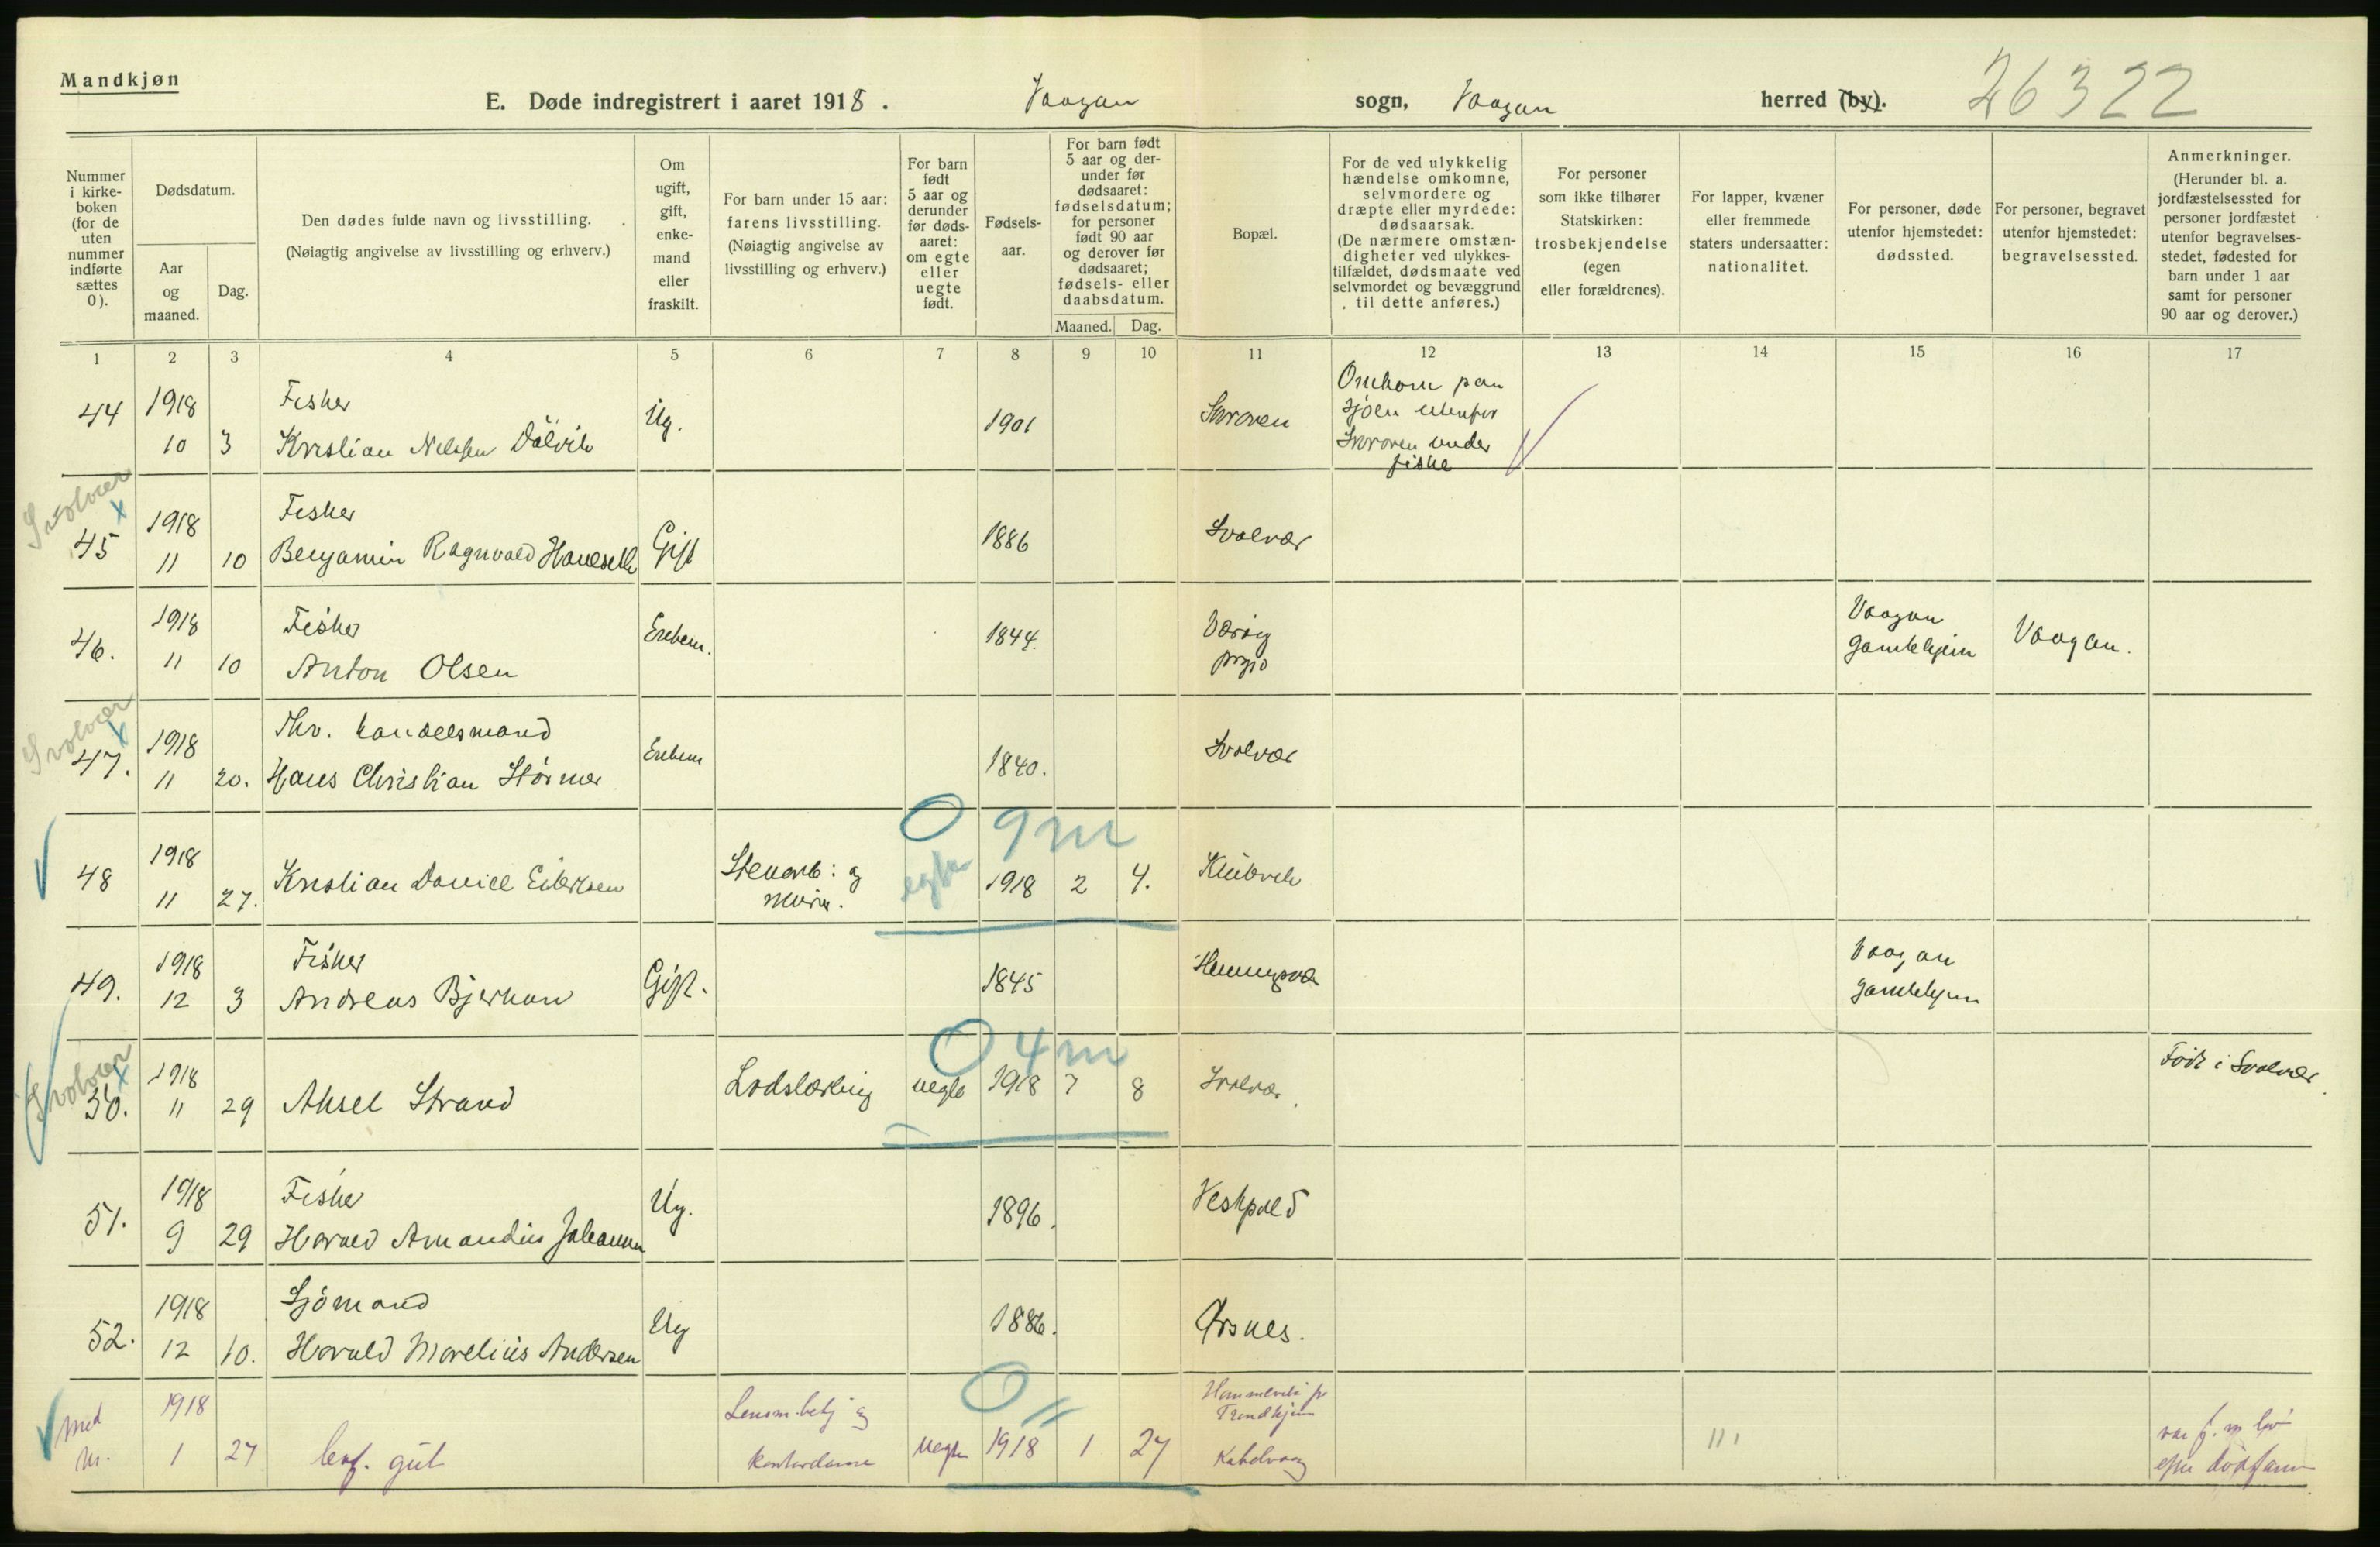 Mandkjøn
E. Døde indregistrert i aaret 1918. Vaagan sogn, Vaagan herred (by). 26322
Nummer i kirke-boken (for de uten nummer indførte sættes 0).
Dødsdatum.
Aar og maaned.
Dag.
Den dødes fulde navn og livsstilling.
(Nøiagtig angivelse av livsstilling og erhverv.)
Om ugift, gift, enke-mand eller fraskilt.
For barn under 15 aar: farens livsstilling.
(Nøiagtig angivelse av livsstilling og erhverv.)
For barn født 5 aar og derunder før døds-aaret: om egte eller uegte født.
Fødsels-aar.
For barn født 5 aar og der-under før dødsaaret: fødselsdatum; for personer født 90 aar og derover før dødsaaret; fødsels- eller daabsdatum.
Maaned.
Dag.
Bopæl.
For de ved ulykkelig hændelse omkomne, selvmordere og dræpte eller myrdede: dødsaarsak.
(De nærmere omstæn-digheter ved ulykkes-tilfældet, dødsmaate ved selvmordet og bevæggrund til dette anføres.)
For personer som ikke tilhører Statskirken: trosbekjendelse (egen eller forældrenes).
For lapper, kvæner eller fremmede staters undersaatter: nationalitet.
For personer, døde utenfor hjemstedet: dødssted.
For personer, begravet utenfor hjemstedet: begravelsessted.
Anmerkninger.
(Herunder bl. a. jordfæstelsessted for personer jordfæstet utenfor begravelses-stedet, fødested for barn under 1 aar samt for personer 90 aar og derover.)
1 2 3 4 5 6 7 8 9 10 11 12 13 14 15 16 17
44 1918 10 3 Fisker
Kristian Nilssen Dalvik Ug. 1901 Skroven Omkom paa
sjøen utenfor
Skroven under
fiske
Svolvær
45 1918 11 10 Fisker
Benjamin Ragnvald Gift 1886 Svolvær
46. 1918 11 10 Fisker
Anton Olsen Enkem. 1844. Værøy
prgjd Vaagan
gamlehjem Vaagan.
Svolvær
47. 1918 11 20. Fhv. handelsmand
Hans Christian Størmer Enkem 1840. Svolvær
48 1918 11 27. Kristian Daniel Stenarb: og
murer. egte 0 9 m 1918 2 4.
49. 1918 12 3 Fisker
Andreas Gift. 1845 Henningsvær Vaagan
gamlehjem
Svolvær
50. 1918 11 29 Aksel Strand Lodslærling uegte 0 4 m 1918 7 8 Svolvær. Født i Svolvær.
51. 1918 9 29 Fisker
Harald Amandus Johansen Ug. 1896. Vestpold
52. 1918 12 10. Sjømand
Harald Marelius Andersen Ug 1886. Ørsnes.
med
nr. 1918 1 27 levf. gut Lensm.betj og
kontordame uegte 0 1918 1 27 Hammervik pr
Trondhjem
Kabelvaag